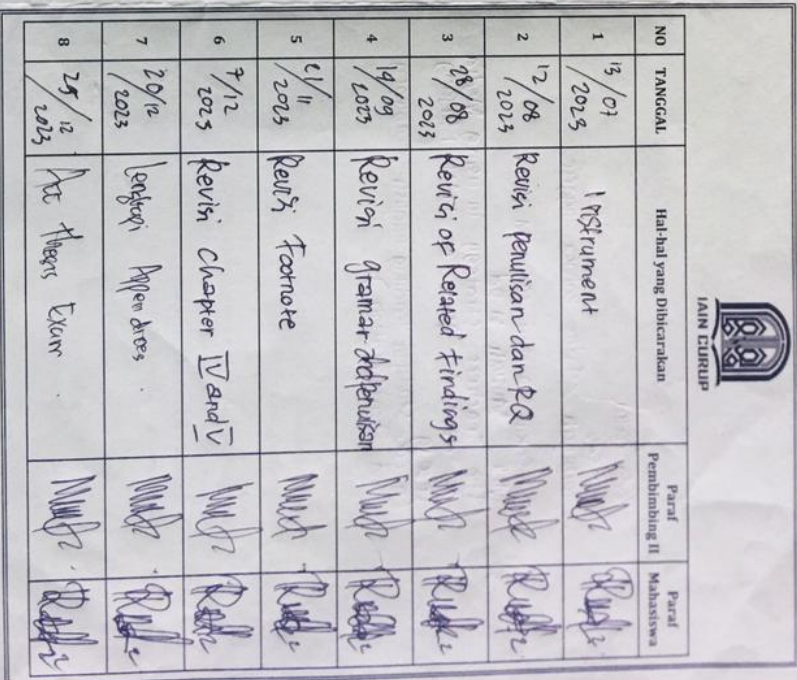 IAIN CURUP
NO TANGGAL Hal-hal yang Dibicarakan Paraf Pembimbing II Paraf Mahasiswa
1 13/07 2023 Instrument
2 12/08 2023 Revisi penulisan dan RQ
3 28/08 2023 Revisi of Related Findings
4 19/09 2023 Revisi gramar dan penulisan
5 21/11 2023 Revisi Footnote
6 7/12 2023 Revisi Chapter IV and V
7 20/12 2023 Lengkapi Appendices.
8 25/12 2023 Acc thesis Exam.